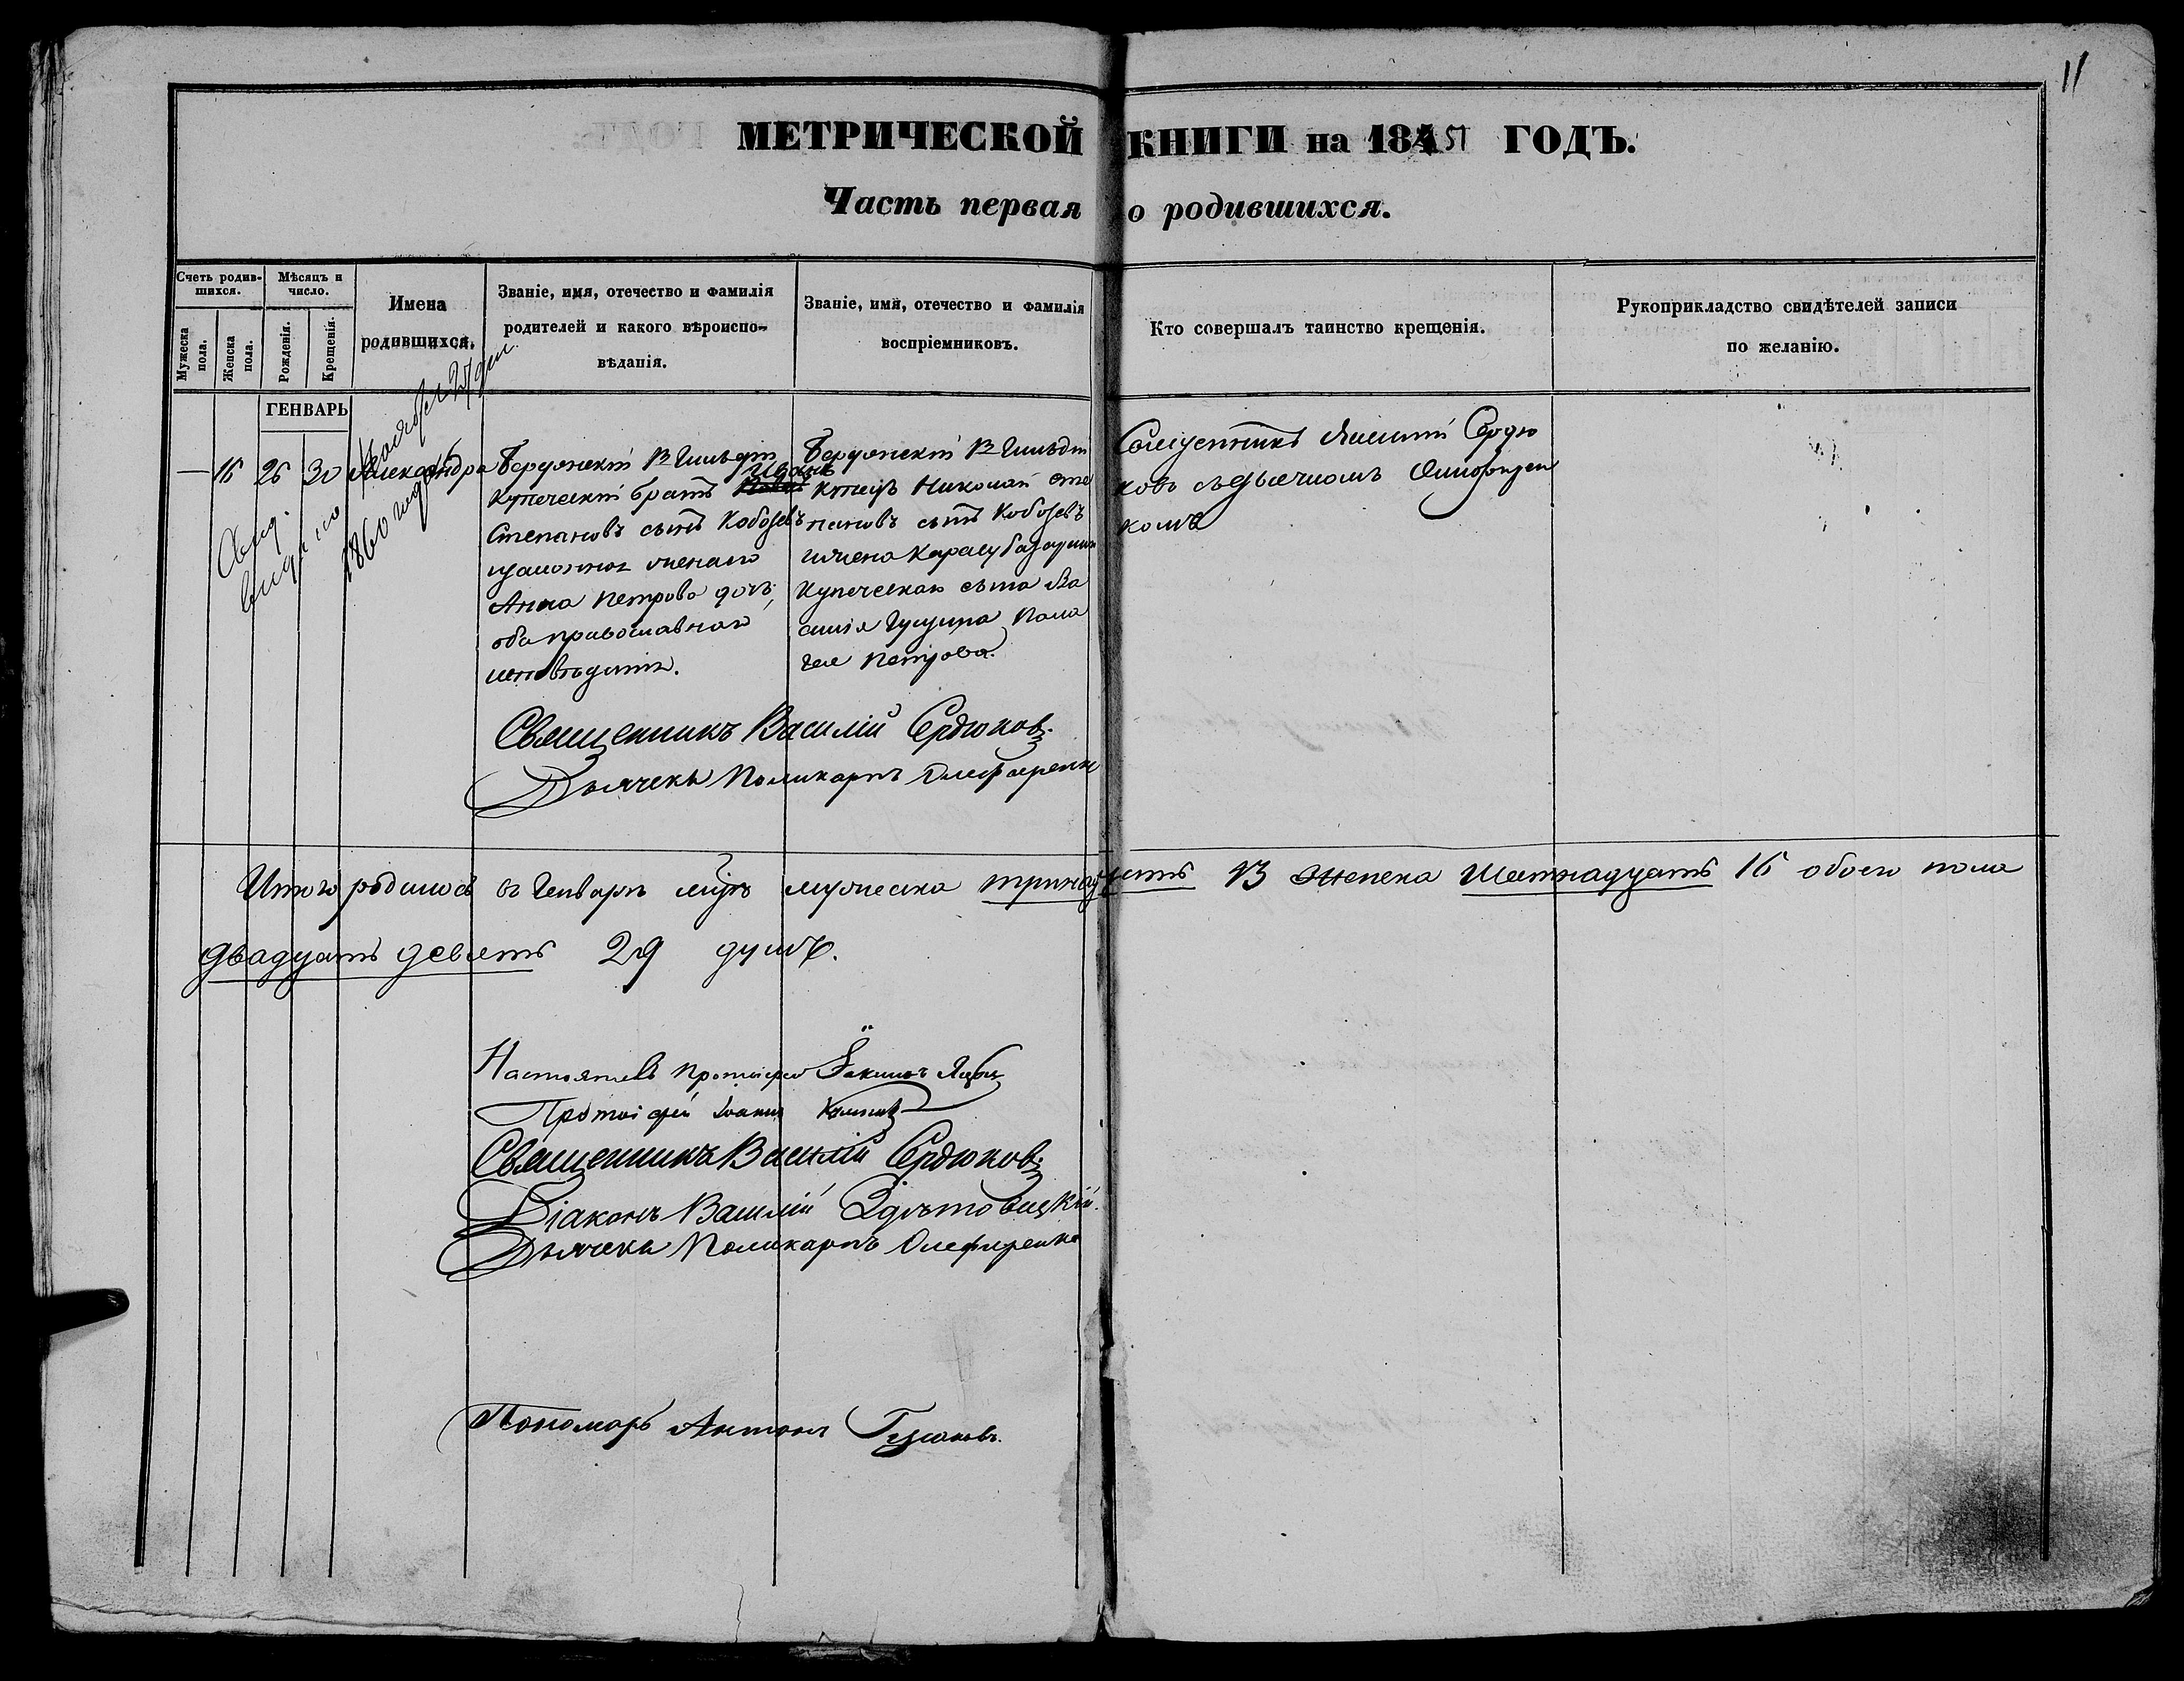 11
МЕТРИЧЕСКОЙ КНИГИ на 1851 ГОДЪ.
Часть первая о родившихся.
Счетъ родив-
шихся.
Мужеска
пола.
Женска
пола.
Мѣсяцъ и
число.
Рожденія.
Крещенія.
Имена
родившихся.
Званіе, имя, отечество и фамилія
родителей и какого вѣроиспо-
вѣданія.
Званіе, имя, отечество и фамилія
воспріемниковъ.
Кто совершалъ таинство крещенія.
Рукоприкладство свидѣтелей записи
по желанію.
ГЕНВАРЬ
— 16 26 30 Александра
выдано
1860 года
Ноября 27 дня
Бердянскій
Купеческій братъ Иванъ
Степановъ сынъ Кобозевъ
законная женаго
Анна Петрова дочь,
оба православнаго
исповѣданія.
Бердянскій
купецъ Николай Сте
пановъ сынъ Кобозевъ
и жена Карасубазарскаго
Купеческаго сына
Пала
гея Петрова.
Священникъ Василій Сердю
ковъ съ дьячкомъ Олиферен
комъ
Священникъ Василій Сердюковъ.
Дьячекъ Поликарпъ Олиференко
Итого родилось въ Генварѣ м҃цѣ мужеска тринадцать 13 женска шестнадцать 16 обоего пола
двадцать девять 29 душъ.
Настоятель Протоіерей
Протоіерей Іоаннъ
Священникъ Василій Сердюковъ
Діаконъ Василій
Дьячекъ Поликарпъ Олефиренко
Пономарь Антонъ